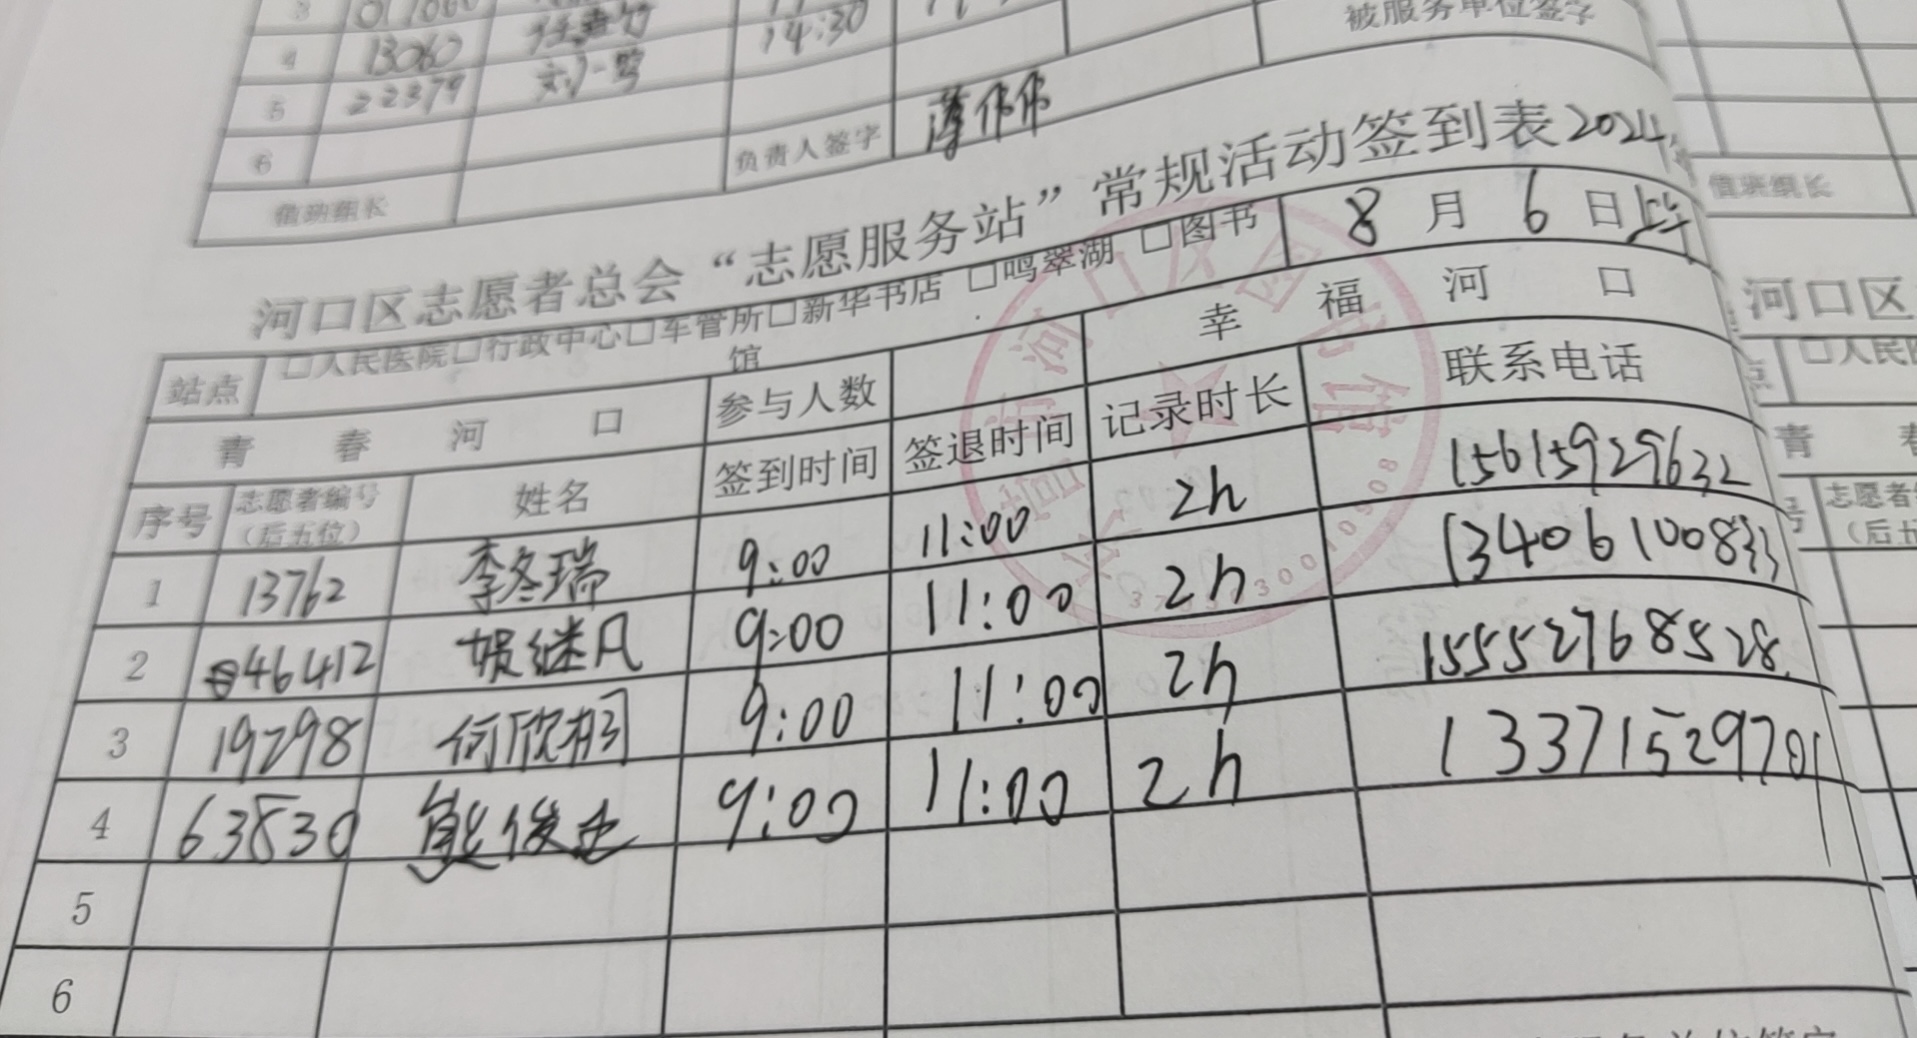 4 13060 14:30
5 22379 刘一鸣
6 负责人签字 薄伟伟 被服务单位签字
值班组长
河口区志愿者总会“志愿服务站”常规活动签到表2024.
站点 □人民医院□行政中心□车管所□新华书店 □鸣翠湖 □图书馆 8月6日上午
青春河口 参与人数 幸福河口
序号 志愿者编号（后五位） 姓名 签到时间 签退时间 记录时长 联系电话
1 13762 李冬瑞 9:00 11:00 2h 15615929632
2 46412 娯继凡 9:00 11:00 2h 13406100833
3 19298 何欣桐 9:00 11:00 2h 15552768528
4 63530 熊俊 9:00 11:00 2h 13371529701
5
6
值班组长
河口区
□人民医
点
青春
号 志愿者
（后五